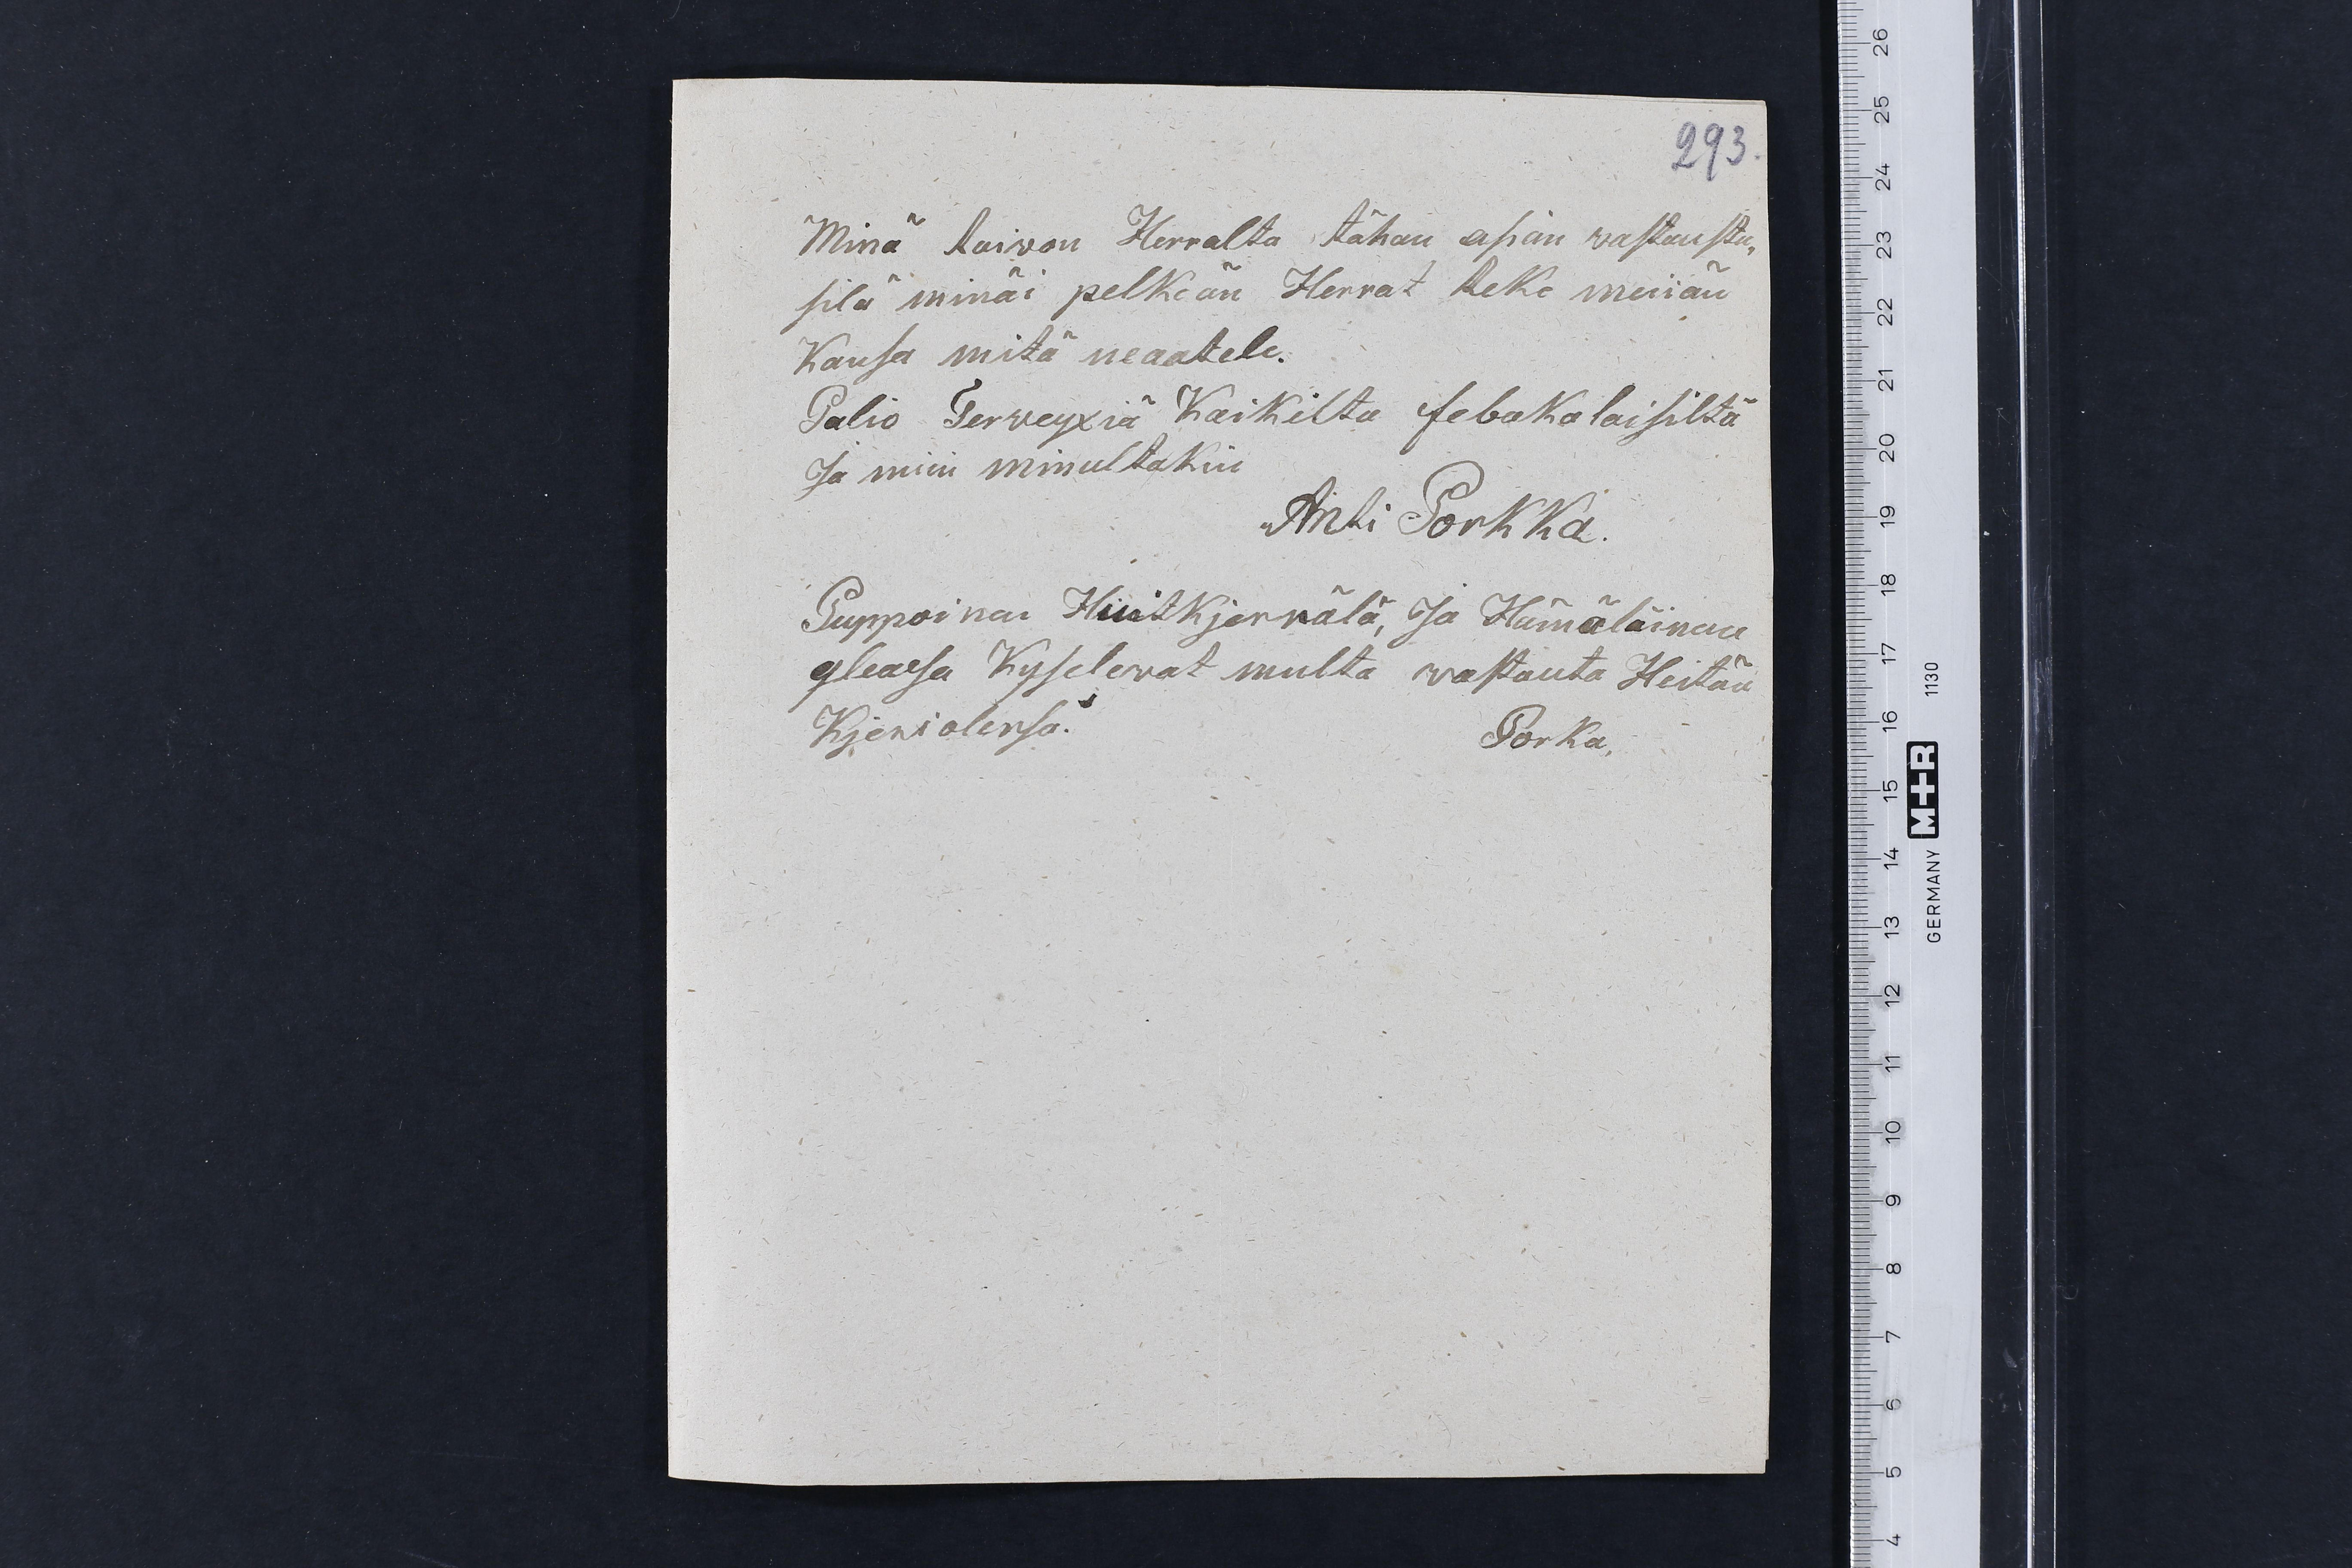 293.
Minä toivon Herralta tähan asian wastausta,
silä minäi pelkeän Herrat teke meiiän
Kansa mitä neaatele.
Palio Terveyxiä Kaikilta sebakalaisiltä
Ja niin minultakin
Anti Porkka.
Puppoinen Hiiitkjerwälä, Ja Hämäläinen
yleasa Kyselewat multa wastauta Heitän
Kjeriolensa.
Porka,
26
25
24
23
22
21
20
19
18
17
16
15
14
13
12
11
10
9
8
7
6
5
4
GERMANY M+R 1130